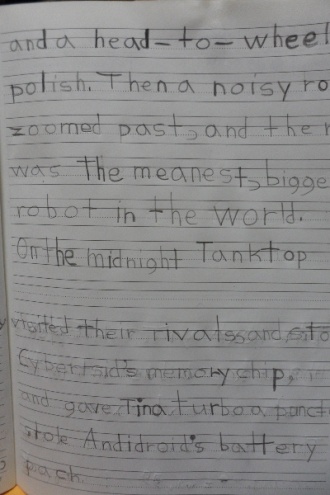 and a head-to-wheel
polish. Then a noisy ro
zoomed past, and there
was The meanest, bigge
robot in the world.
On the midnight Tanktop
visited their rivals and sto
Cyberfrid's memory chip,
and gave Tina turbo a punct
stole Andidroid's battery
pack